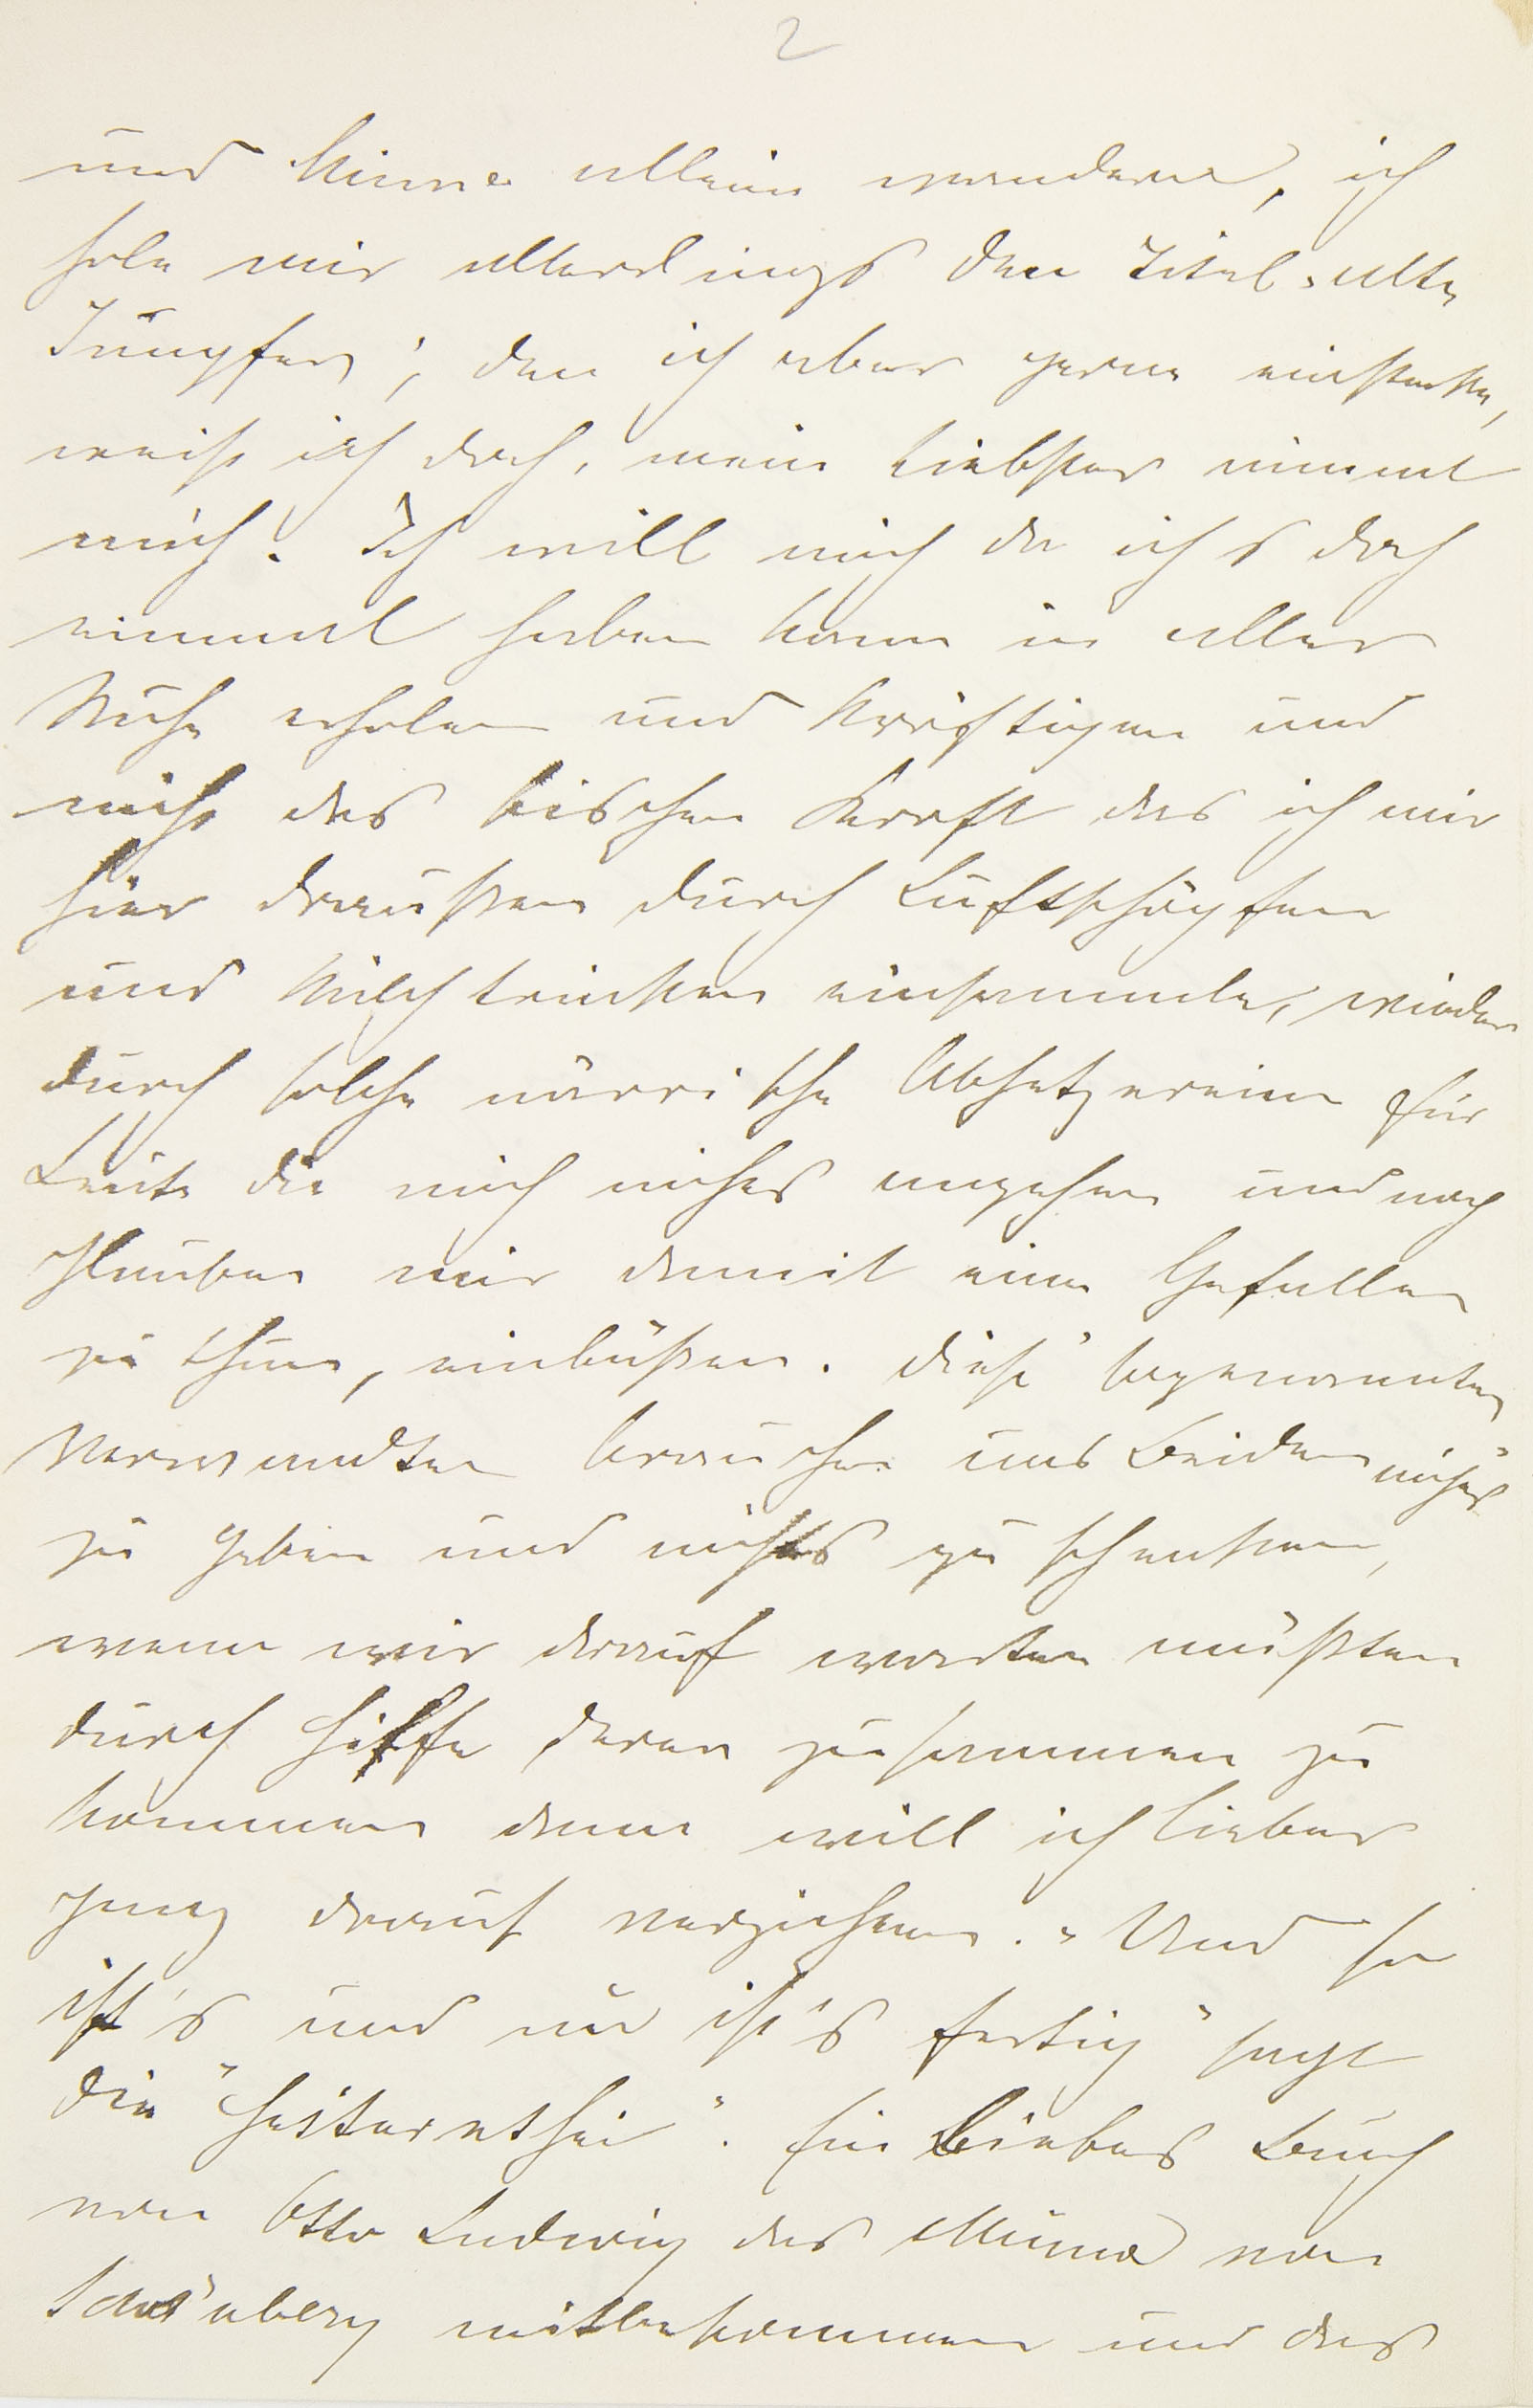 2
und Minna allein wandern, ich
hole mir allerdings den Titel „alte
Jungfer", den ich aber gerne einstecke,
weiß ich doch, mein Liebster nimmt
mich! Ich will mich da ich's doch
einmal haben kann in aller
Ruhe erholen und kräftigen und
nicht das bischen Kraft das ich mir
hier draußen durch Luftschöpfen
und Milchtrinken einsammle, wieder
durch solche närrische Abhetzereien für
Leute die mich nichts angehen und noch
glauben mir damit einen Gefallen
zu thun, einbüßen. Diese "sogenannten
Verwandten" brauchen uns Beiden nichts
zu geben und nichts zu schenken,
wenn wir darauf warten müßten
durch Hilfe deren zusammen zu
kommen dann will ich lieber
ganz darauf verzichten. „Und so
ist's und nu ist's fertig" sagt
die "Heiterethei". Ein liebes Buch
von Otto Ludwig das Minna von
Schönberg mitbekommen und das